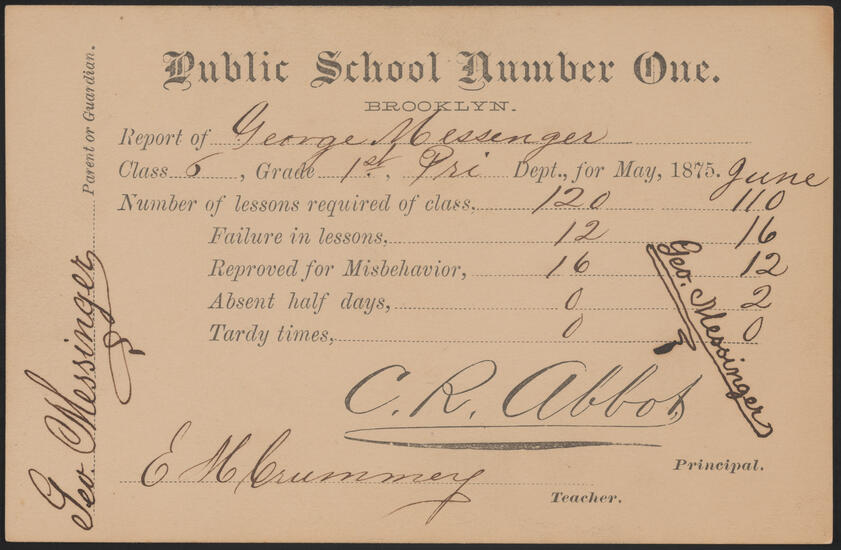 Public School Number One.
BROOKLYN.
Report of George Messenger
Class 6, Grade 1st. Pri Dept., for May, 1875. June
Number of lessons required of class, 120 110
Failure in lessons, 12 16
Reproved for Misbehavior, 16 12
Absent half days, 0 2
Tardy times, 0 0
Geo. Messinger
C. R. Abbot
Principal.
E M Crummey
Teacher.
Geo. Messinger
Parent or Guardian.